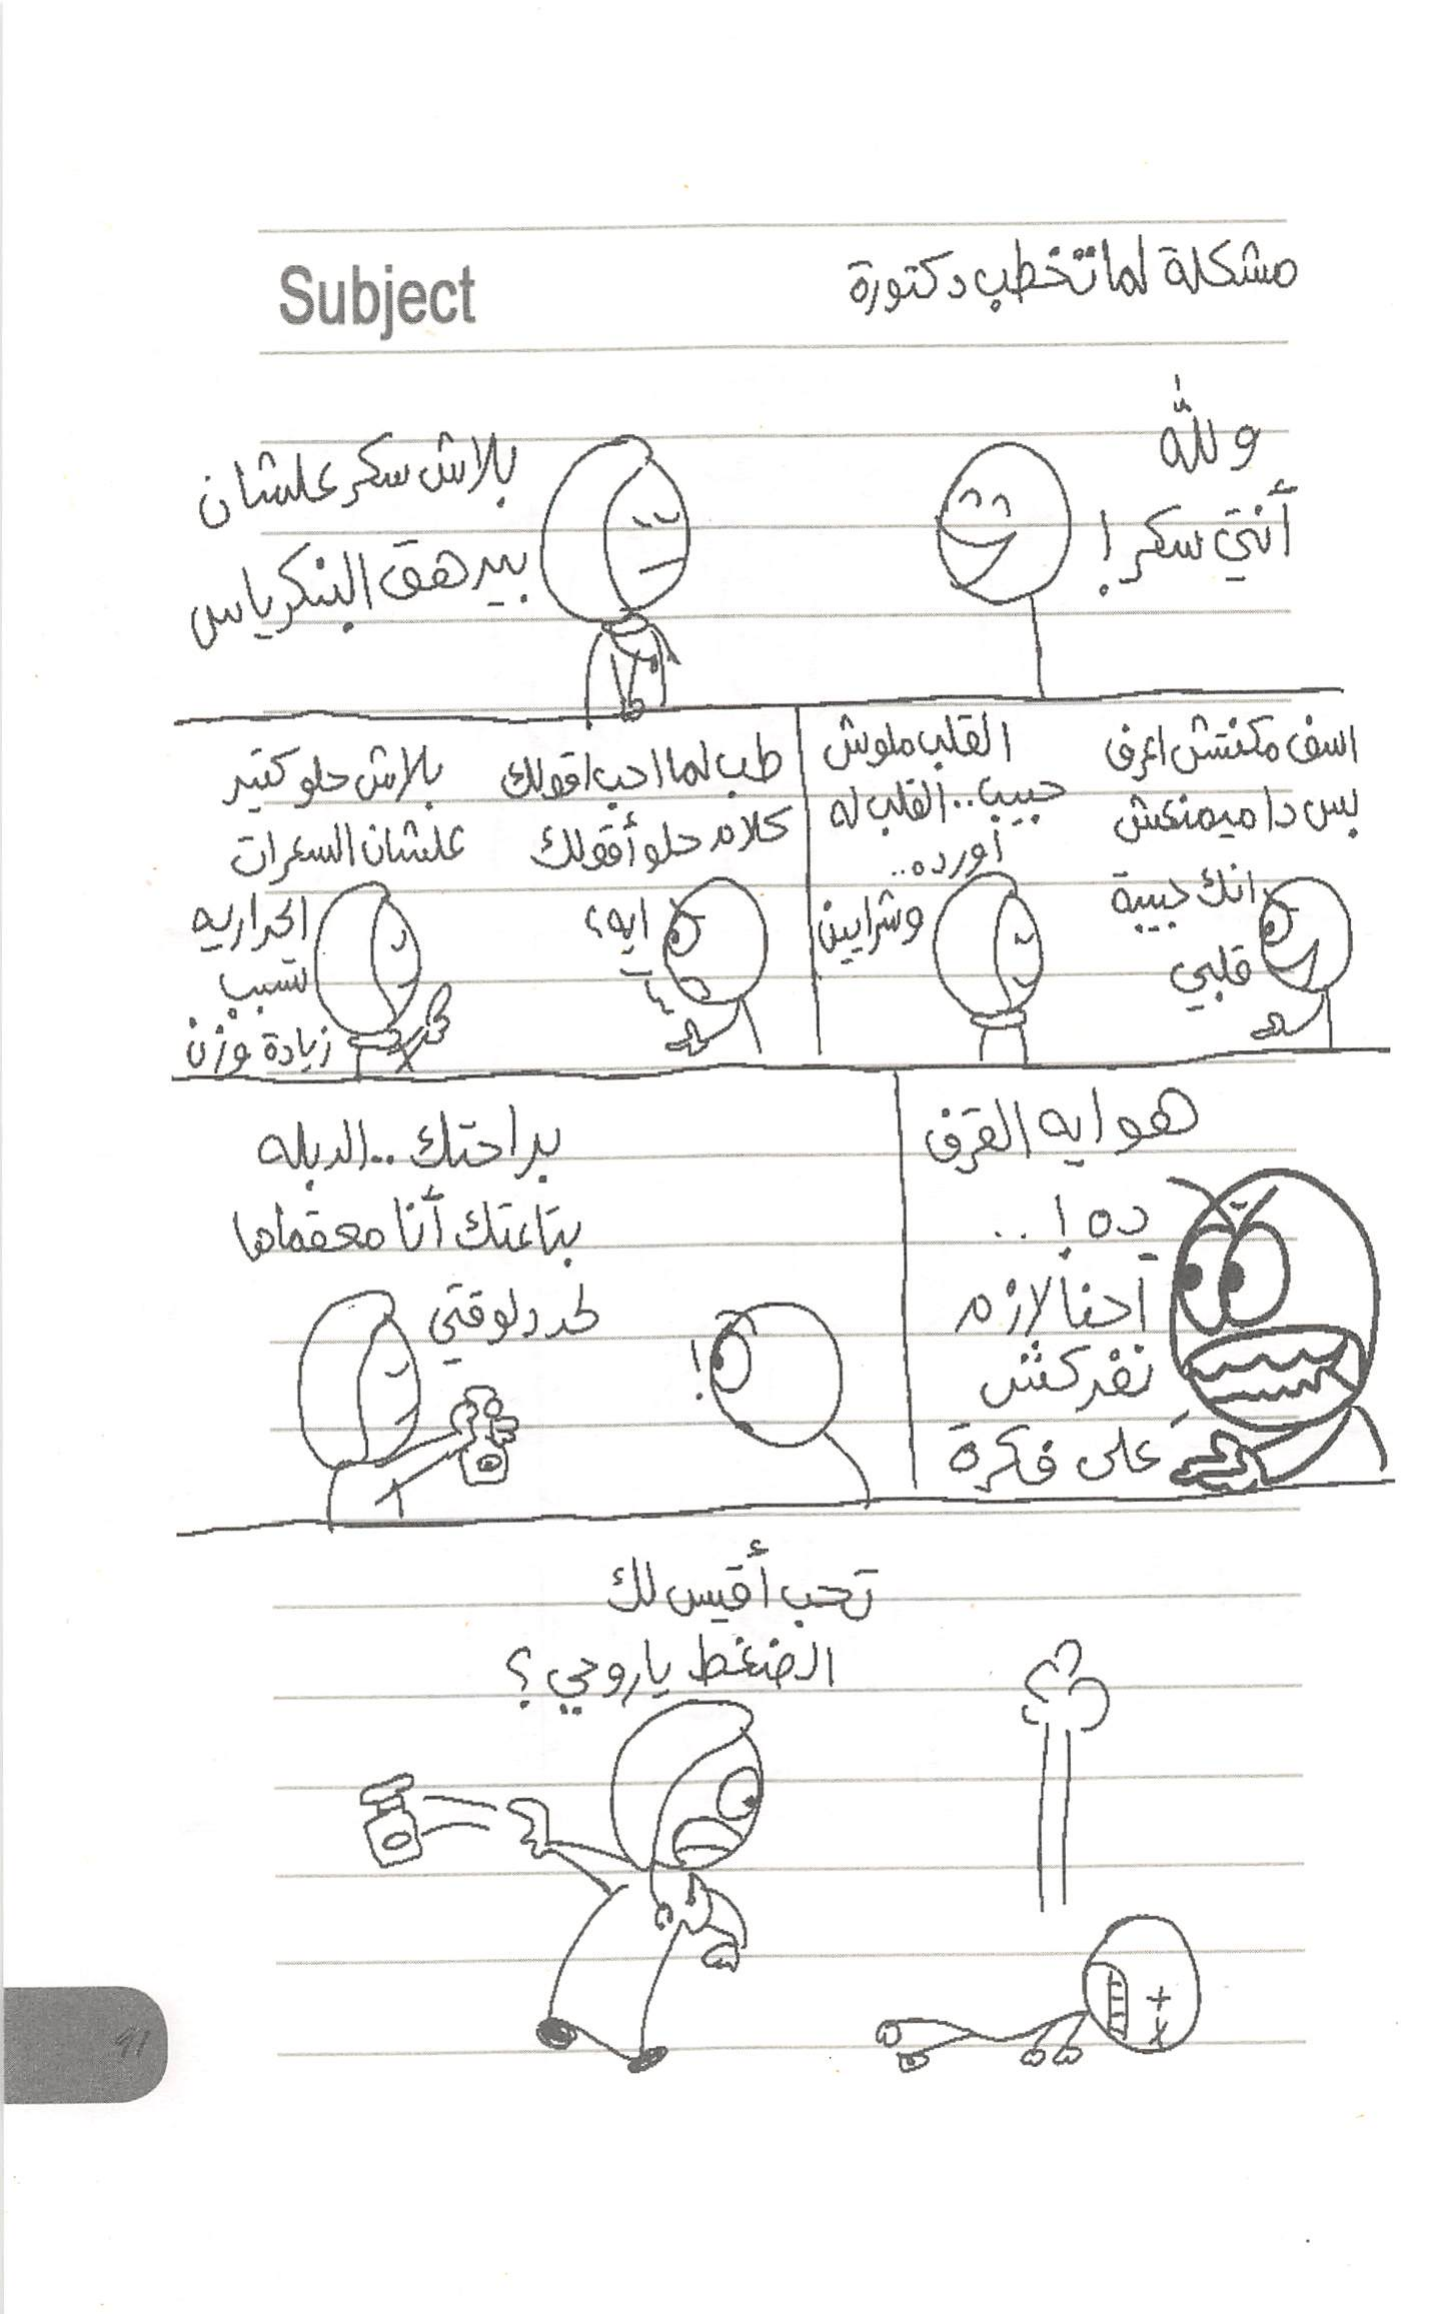 Subject
مشكلة لما تخطب دكتورة
والله
أنتي سكر!
بلاش سكر علشان
بيرهق البنكرياس
اسف مكنتش اعرف
بس دا ميمنعش
انك حبيبة
قلبي
القلب ملوش
حبيب.. القلب له
أورده..
وشرايين
طب لما احب اقولك
كلام حلو أقولك
ايه؟
بلاش حلو كتير
علشان السعرات
الحراريه
تسبب
زيادة وزن
هو ايه القرف
ده!..
احنا لازم
نفركش
على فكرة
براحتك.. الدبله
بتاعتك أنا معقماها
لحد دلوقتي
!
تحب أقيس لك
الضغط ياروحي؟
91